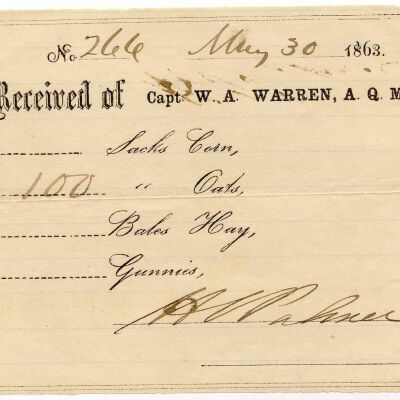 No. 266 May 30 1863.
Received of Capt. W. A. WARREN, A. Q. M
Sacks Corn,
100 " Oats,
Bales Hay,
Gunnies,